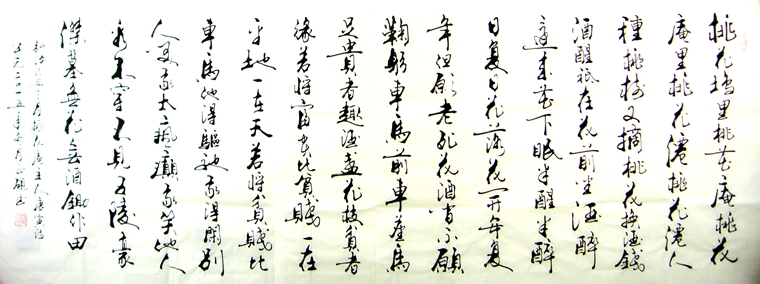 桃花坞里桃花庵桃花
庵里桃花僊桃花僊人
種桃樹又摘桃花换酒錢
酒醒祗在花前坐酒醉
還来花下眠半醒半醉
日复日花落花開年复
年但願老死花酒间不願
鞠躬車馬前車塵馬
足貴者趣酒盞花枝貧者
缘若將富貴比貧賤一在
平地一在天若將貧賤比
車馬他得驅馳我得閒别
人笑我太瘋癲我笑他人
看不穿不見五陵豪
傑墓無花無酒鋤作田
弘治乙丑三月桃花庵主人唐寅詩
公元二〇一五年